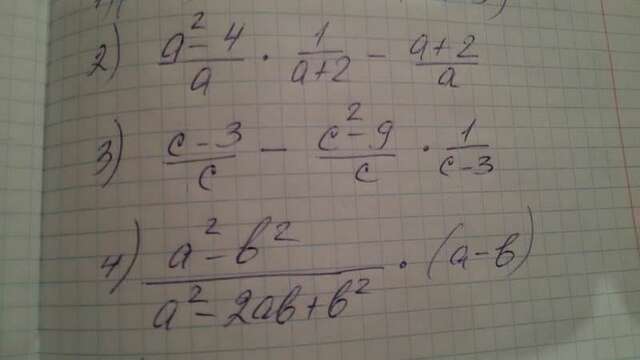 2) \frac{a^2-4}{a} \cdot \frac{1}{a+2} - \frac{a+2}{a}
3) \frac{c-3}{c} - \frac{c^2-9}{c} \cdot \frac{1}{c-3}
4) \frac{a^2-b^2}{a^2-2ab+b^2} \cdot (a-b)